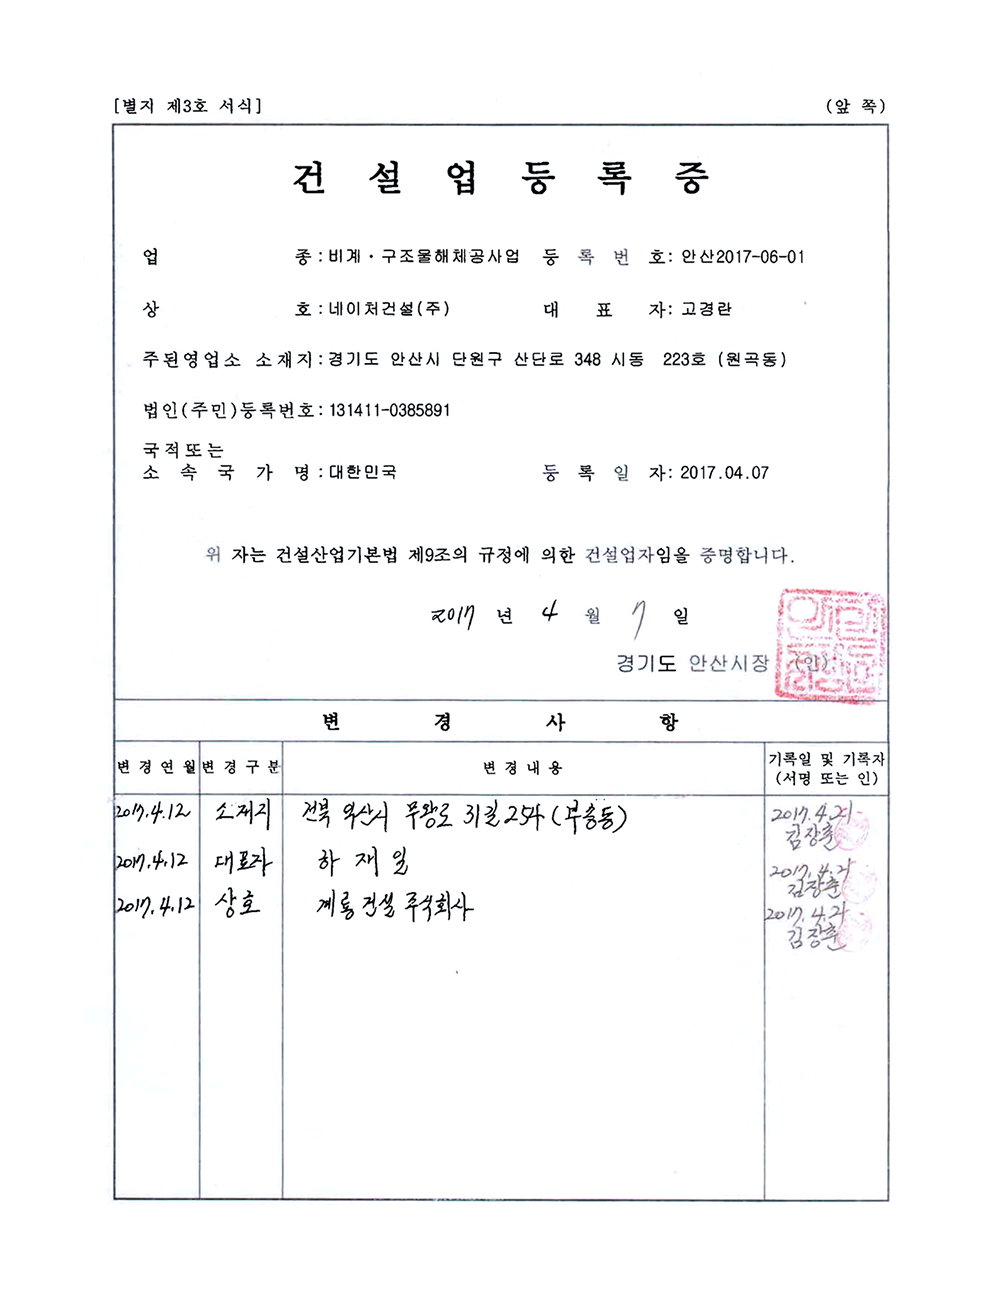 [별지 제3호 서식] (앞 쪽)
건 설 업 등 록 증
업 종 : 비계・구조물해체공사업 등 록 번 호: 안산2017-06-01
상 호 : 네이처건설(주) 대 표 자: 고경란
주된영업소 소재지 : 경기도 안산시 단원구 산단로 348 시동 223호 (원곡동)
법인(주민)등록번호 : 131411-0385891
국적또는
소 속 국 가 명 : 대한민국 등 록 일 자: 2017.04.07
위 자는 건설산업기본법 제9조의 규정에 의한 건설업자임을 증명합니다.
2017 년 4 월 7 일
경기도 안산시장 (인)
변 경 사 항
변경연월 변경구분 변경내용 기록일 및 기록자
(서명 또는 인)
2017.4.12 소재지 전북 익산시 무왕로 31길 254 (부송동) 2017.4.21
김장춘
2017.4.12 대표자 하재일 2017.4.21
김장춘
2017.4.12 상호 계룡건설 주식회사 2017.4.21
김장춘